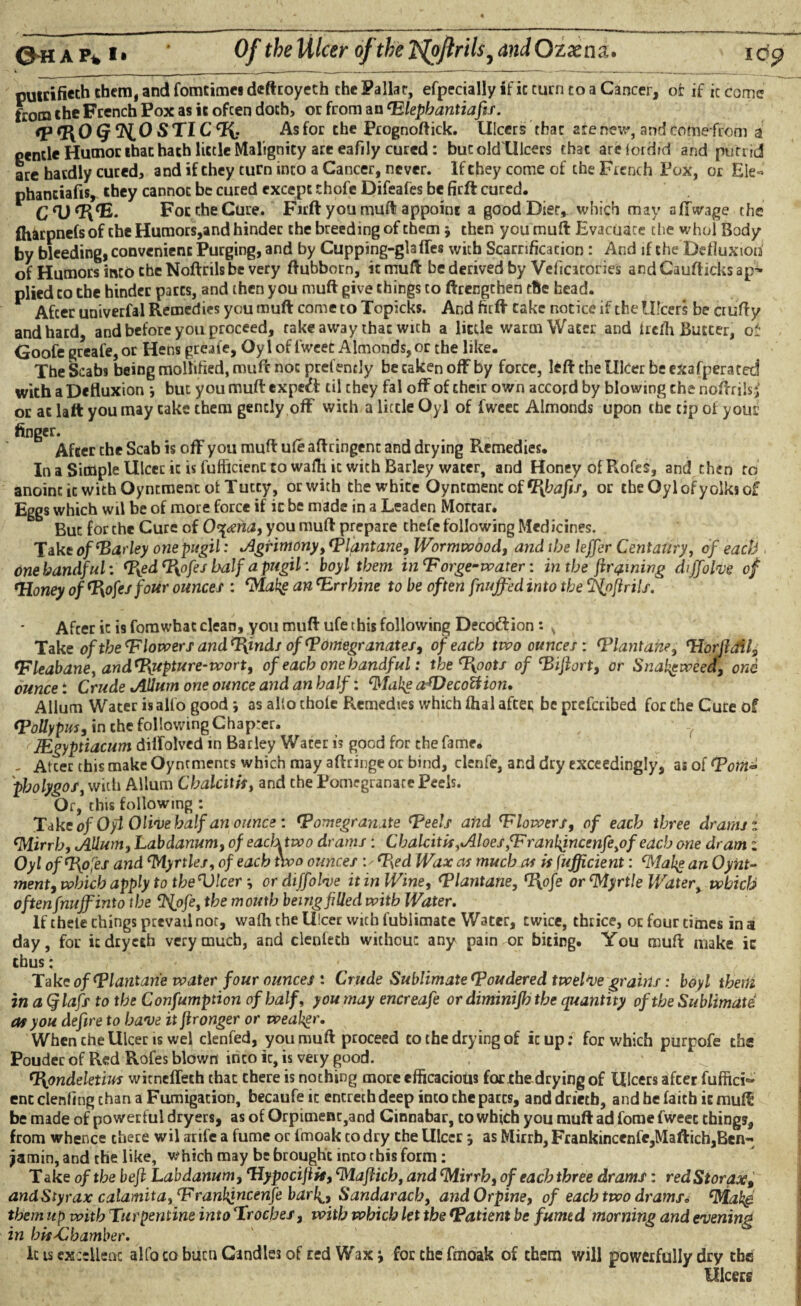 CHAP. I. Of the Ulcer of the Nostrils, and Ozæna. 109
putrifieth them, and somtimes destroyeth the Pallat, especially if it turn to a Cancer, or if it come
from the French Pox as it often doth, or from an Elephantiasis.
PROGNOSTICK. As for the Prognostick. Ulcers that are new, and come from a
gentle Humor that hath little Malignity are easily cured: but old Ulcers that are sordid and putrid
are hardly cured, and if they turn into a Cancer, never. If they come of the French Pox, or Ele-
phantiasis, they cannot be cured except those Diseases be first cured.
CURE. For the Cure. First you must appoint a good Diet, which may asswage the
sharpness of the Humors, and hinder the breeding of them; then you must Evacuate the whol Body
by bleeding, convenient Purging, and by Cupping-glasses with Scarrification: And if the Defluxion
of Humors into the Nostrils be very stubborn, it must be derived by Vesicatories and Causticks ap-
plied to the hinder parts, and then you must give things to strengthen the head.
After universal Remedies you must come to Topicks. And first take notice if the Ulcers be crusty
and hard, and before you proceed, take away that with a little warm Water and fresh Butter, of
Goose grease, or Hens grease, Oyl of sweet Almonds, or the like.
The Scabs being mollified, must not presently be taken off by force, lest the Ulcer be exasperated
with a Defluxion; but you must expect til they fal off of their own accord by blowing the nostrils;
or at last you may take them gently off with a little Oyl of sweet Almonds upon the tip of your
finger.
After the Scab is off you must use astringent and drying Remedies.
In a Simple Ulcer it is sufficient to wash it with Barley water, and Honey of Roses, and then to
anoint it with Oyntment of Tutty, or with the white Oyntment of Rhasis, or the Oyl of yolks of
Eggs which wil be of more force if it be made in a Leaden Mortar.
But for the Cure of Ozæna, you must prepare these following Medicines.
Take of Barley one pugil: Agrimony, Plantane, Wormwood, and the lesser Centaury, of each
one handful: Red Roses half a pugil: boyl them in Forge-water: in the straining dissolve of
Honey of Roses four ounces: Make an Errhine to be often snuffed into the Nostrils.
After it is somwhat clean, you must use this following Decoction:
Take of the Flowers and Rinds of Pomegranates, of each two ounces: Plantane, Horstail,
Fleabane, and Rupture-wort, of each one handful: the Roots of Bistort, or Snakeweed, one
ounce: Crude Allum one ounce and an half: Make a Decoction.
Allum Water is also good; as also those Remedies which shal after be prescribed for the Cure of
Pollypus, in the following Chapter.
Ægyptiacum dissolved in Barley Water is good for the same.
After this make Oyntments which may astringe or bind, clense, and dry exceedingly, as of Pom-
pholygos, with Allum Chalcitis, and the Pomegranate Peels.
Or, this following:
Take of Oyl Olive half an ounce: Pomegranate Peels and Flowers, of each three drams:
Mirrh, Allum, Labdanum, of each two drams: Chalcitis, Aloes, Frankincense, of each one dram:
Oyl of Roses and Myrtles, of each two ounces: Red Wax as much as is sufficient: Make an Oynt-
ment, which apply to the Ulcer; or dissolve it in Wine, Plantane, Rose or Myrtle Water, which
often snuff into the Nose, the mouth being filled with Water.
If these things prevail not, wash the Ulcer with sublimate Water, twice, thrice, or four times in a
day, for it dryeth very much, and clenseth without any pain or biting. You must make it
thus:
Take of Plantane water four ounces: Crude Sublimate Poudered twelve grains: boyl them
in a Glass to the Consumption of half, you may encrease or diminish the quantity of the Sublimate
as you desire to have it stronger or weaker.
When the Ulcer is wel clensed, you must proceed to the drying of it up: for which purpose the
Pouder of Red Roses blown into it, is very good.
Rondeletius witnesseth that there is nothing more efficacious for the drying of Ulcers after suffici-
ent clensing than a Fumigation, because it entreth deep into the parts, and drieth, and he saith it must
be made of powerful dryers, as of Orpiment, and Cinnabar, to which you must ad some sweet things,
from whence there wil arise a fume or smoak to dry the Ulcer; as Mirrh, Frankincense, Mastich, Ben-
jamin, and the like, which may be brought into this form:
Take of the best Labdanum, Hypocistis, Mastich, and Mirrh, of each three drams: red Storax,
and Styrax calamita, Frankincense bark, Sandarach, and Orpine, of each two drams: Make
them up with Turpentine into Troches, with which let the Patient be fumed morning and evening
in his Chamber.
It is excellent also to burn Candles of red Wax; for the smoak of them will powerfully dry the
Ulcers